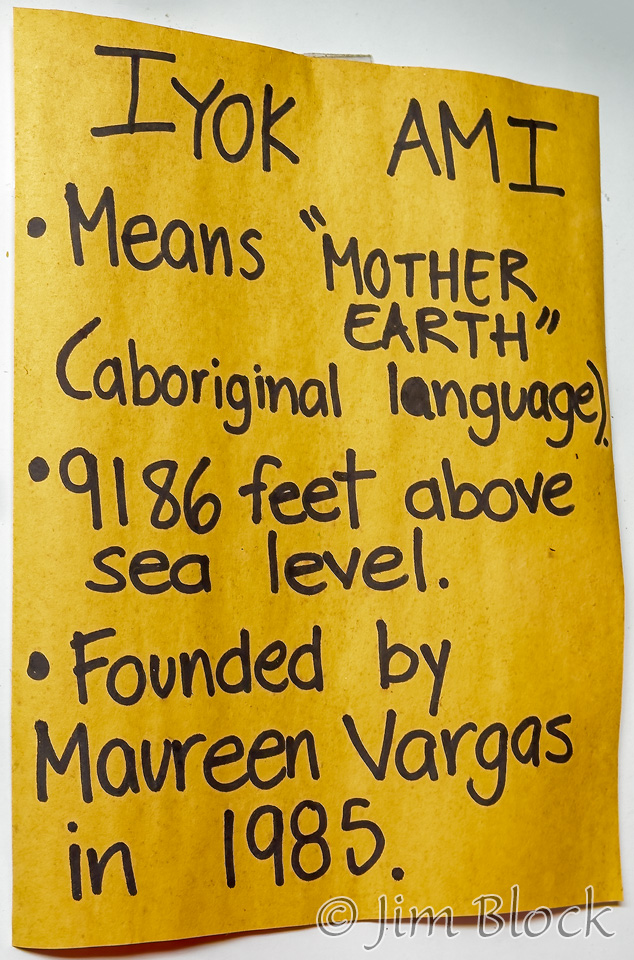 IYOK AMI
• Means "MOTHER
EARTH"
(aboriginal language).
• 9186 feet above
sea level.
• Founded by
Maureen Vargas
in 1985.
© Jim Block